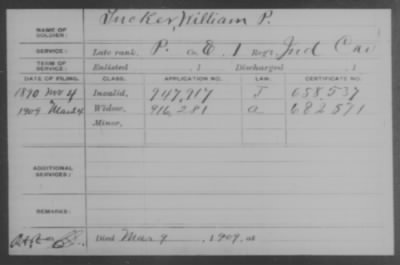 NAME OF SOLDIER: Tucker, William P.
SERVICE: Late rank, P. Co. E. 1 Reg't Ind Cav
TERM OF SERVICE: Enlisted , 1 Discharged , 1
DATE OF FILING. CLASS. APPLICATION NO. LAW. CERTIFICATE NO.
1890 Nov 4 Invalid, 947,917 J 658,537
1909 Mar 24 Widow, 916,281 a 682,571
Minor,
ADDITIONAL SERVICES:
REMARKS:
Died Mar 9, 1909, at